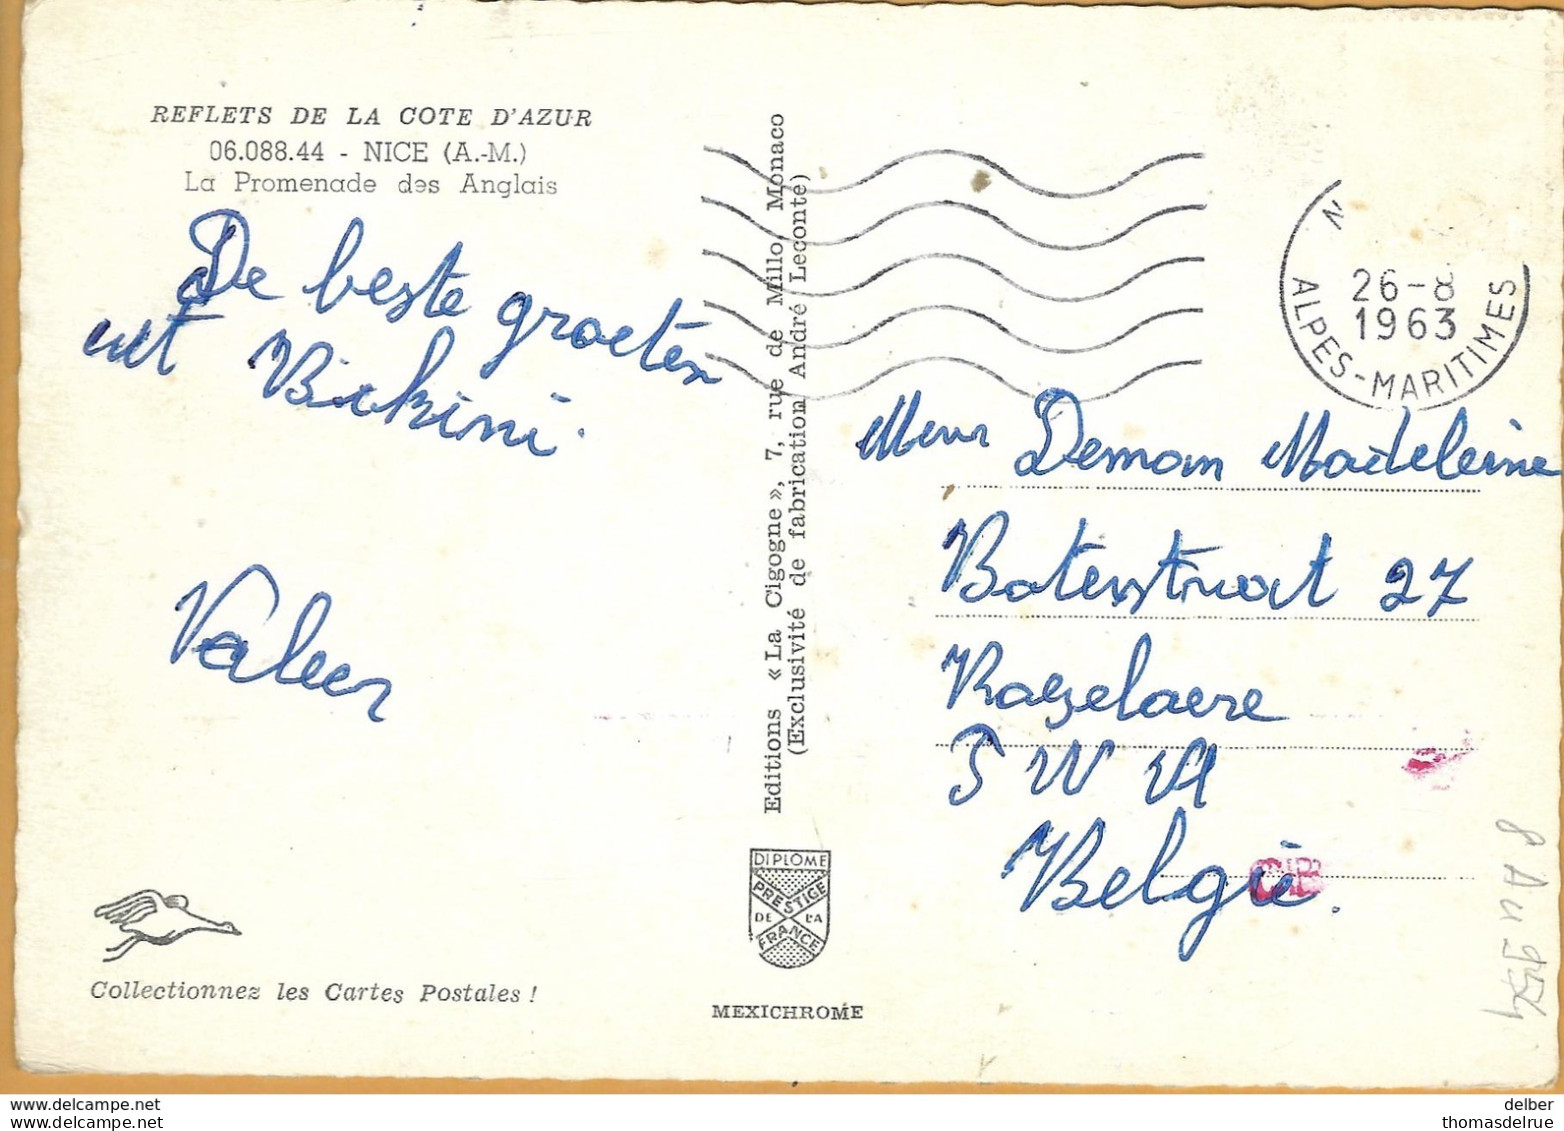 REFLETS DE LA COTE D'AZUR
06.088.44 - NICE (A.-M.)
La Promenade des Anglais
De beste groeten
uit Bikini.
Valeer
Collectionnez les Cartes Postales !
Editions « La Cigogne », 7, rue de Millo, Monaco
(Exclusivité de fabrication André Leconte)
DIPLOME
PRESTIGE
DE LA
FRANCE
MEXICHROME
N
26-8
1963
ALPES-MARITIMES
Demam Madeleine
Batesstraat 27
Roeselaere
W Vl
België.
delber
thomasdelrue